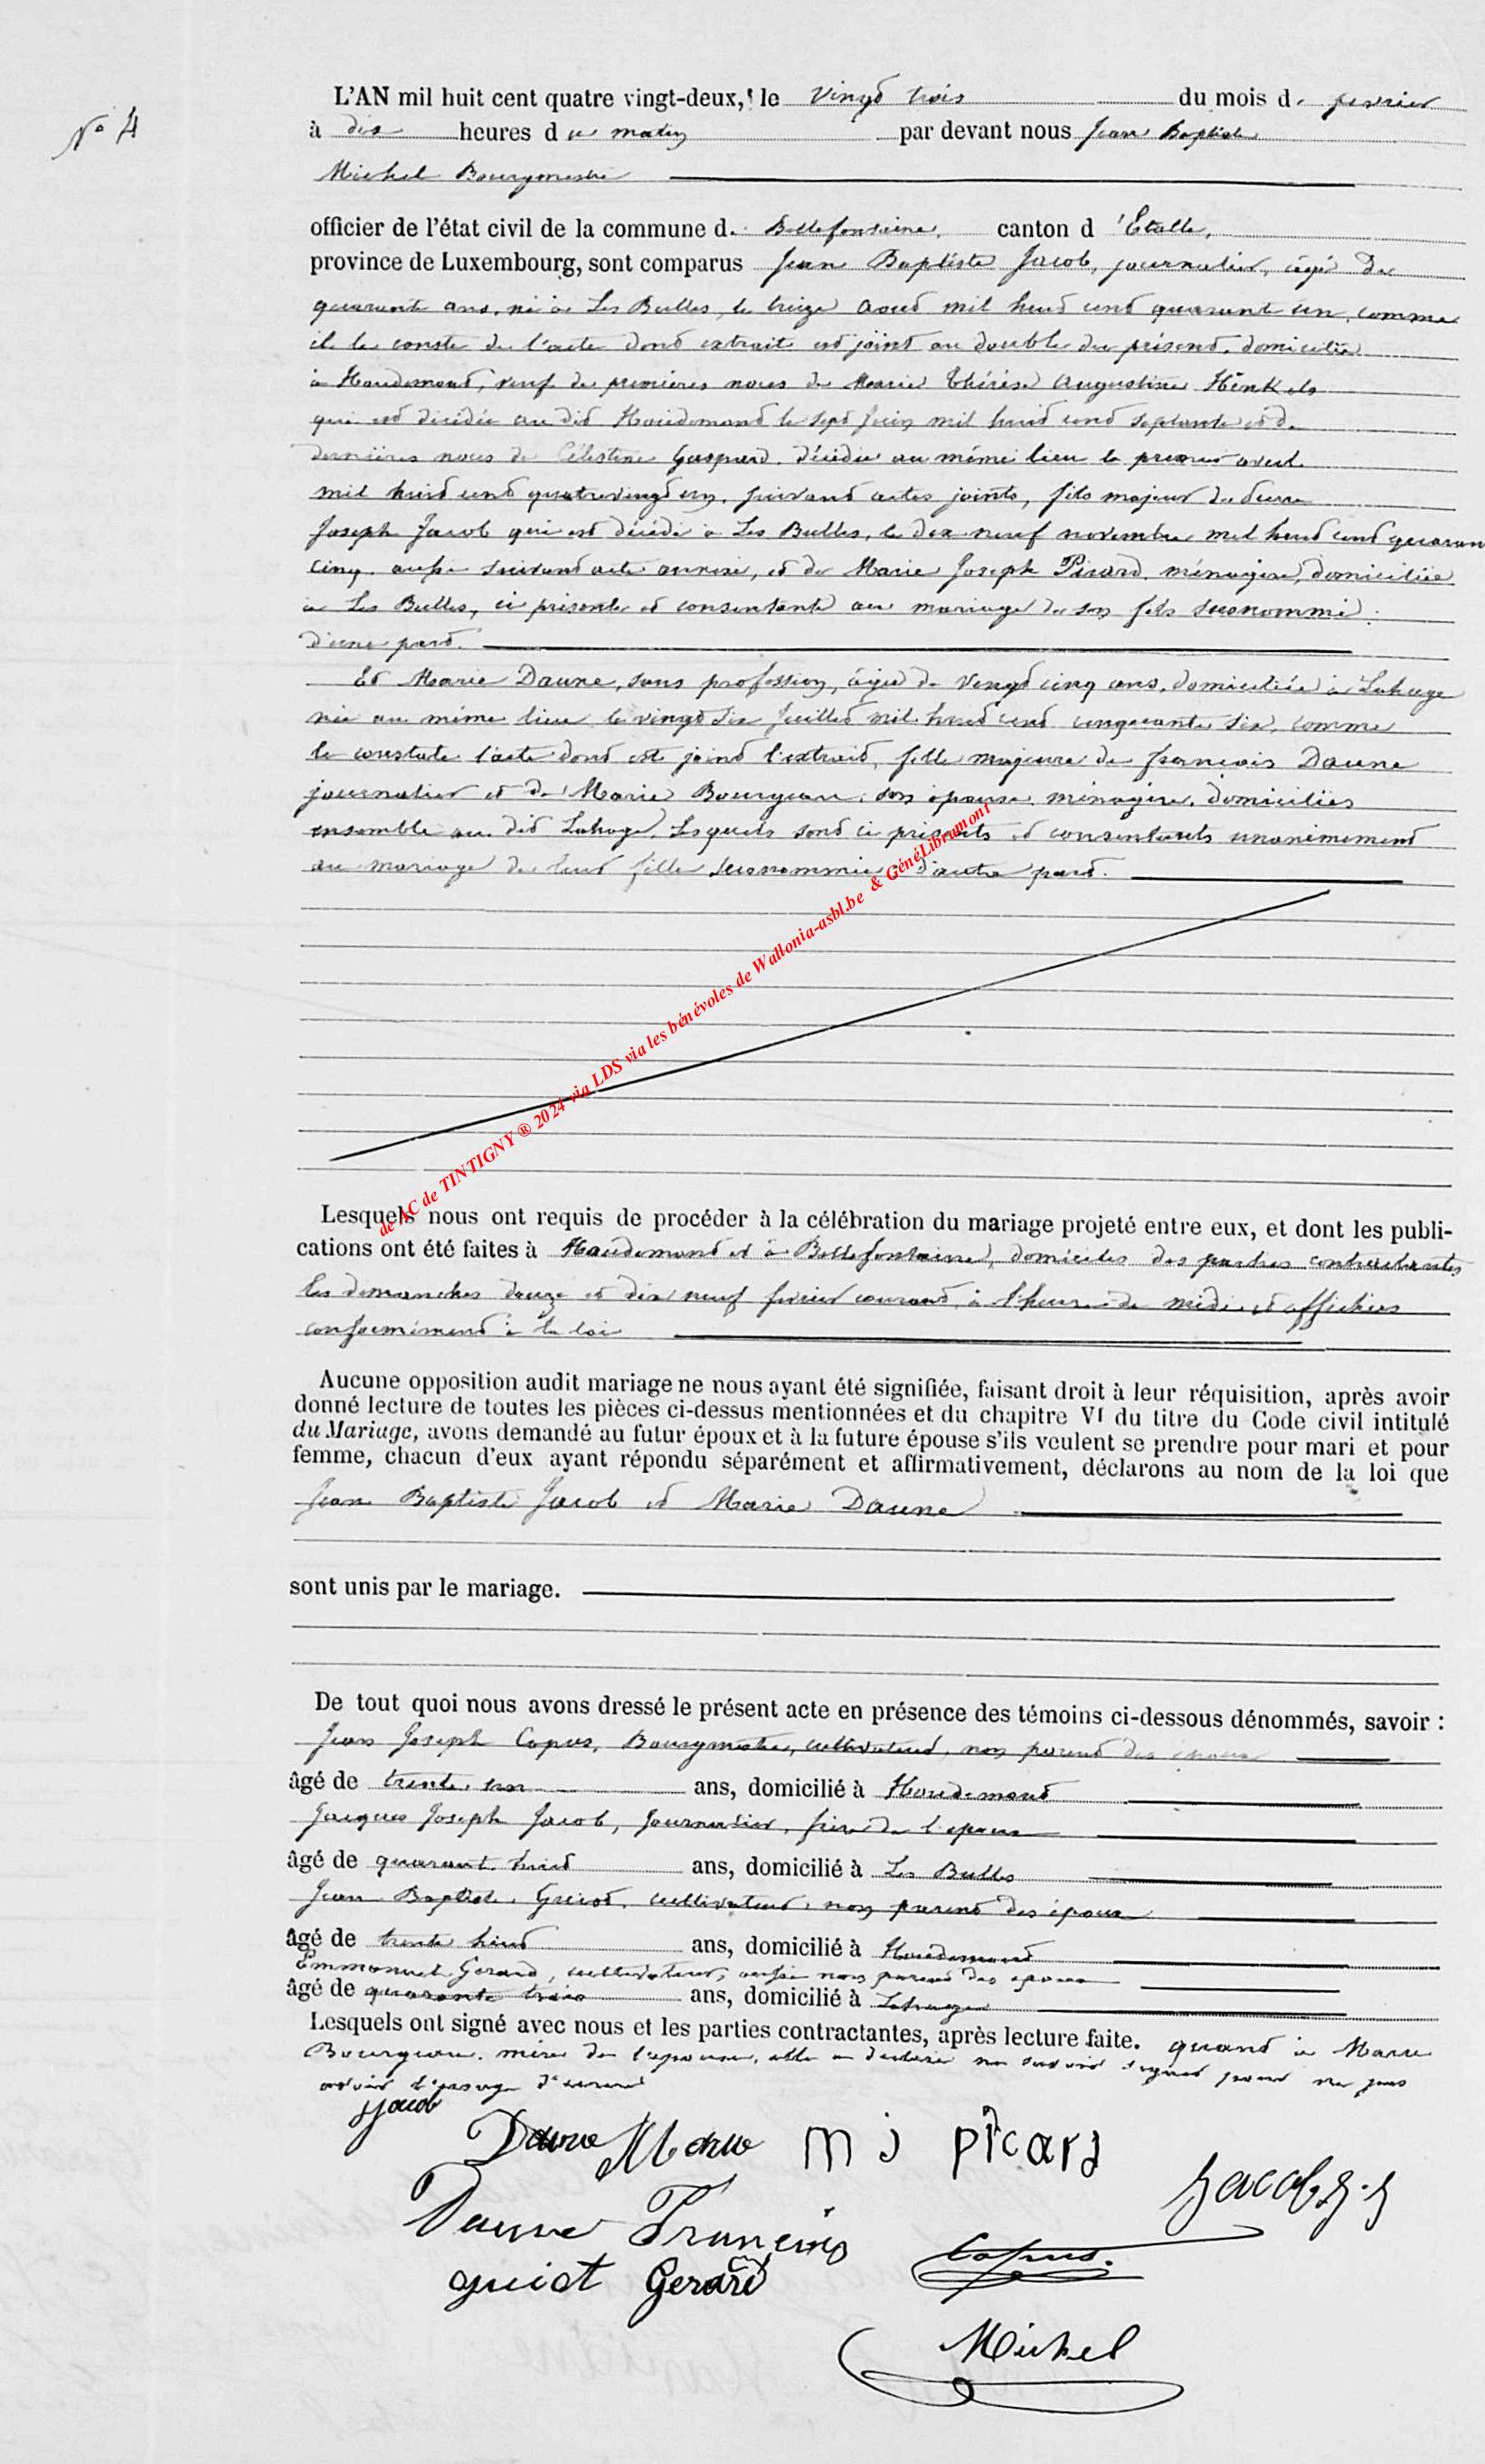 N° 4
L'AN mil huit cent quatre vingt-deux, le vingt trois du mois de fevrier
à dix heures du matin par devant nous Jean Baptiste
Michel Bourgmestre
officier de l'état civil de la commune de Bellefontaine, canton d'Etalle,
province de Luxembourg, sont comparus Jean Baptiste Jacob, journalier, âgé de
quarante ans, né à Les Bulles, le treize août mil huit cent quarante un, comme
il le conste de l'acte dont extrait est joint au double du présent, domicilié
à Houdemont, veuf de premières noces de Marie Thérèse Augustine Hênkels
qui est décédée au dit Houdemont le sept juin mil huit cent septante et de
dernières noces de Célestine Gaspard, décédée au même lieu le premier avril
mil huit cent quatrevingt un, suivant actes joints, fils majeur de
Joseph Jacob qui est décédé à Les Bulles, le dix neuf novembre mil huit cent quarante
cinq, aussi suivant acte annexé, et de Marie Joseph Picard, ménagère, domiciliée
à Les Bulles, ci présente et consentante au mariage de son fils susnommé.
d'une part.
Et Marie Daune, sans profession, âgée de vingt cinq ans, domiciliée à Lahage
née au même lieu le vingt six juillet mil huit cent cinquante six, comme
le constate l'acte dont est joint l'extrait, fille majeure de françois Daune
journalier et de Marie Bourgeau, son épouse, ménagère, domiciliés
ensemble au dit Lahage, Lesquels sont ci présents et consentants unanimement
au mariage de leur fille susnommée d'autre part.
de AC de TINTIGNY ® 2024 via LDS via les bénévoles de Wallonia-asbl.be & GénéLibramont
Lesquels nous ont requis de procéder à la célébration du mariage projeté entre eux, et dont les publi-
cations ont été faites à Houdemont et à Bellefontaine, domiciles des parties contractantes
les dimanches douze et dix neuf février courant, à l'heure de midi et affichées
conformément à la loi
Aucune opposition audit mariage ne nous ayant été signifiée, faisant droit à leur réquisition, après avoir
donné lecture de toutes les pièces ci-dessus mentionnées et du chapitre VI du titre du Code civil intitulé
du Mariage, avons demandé au futur époux et à la future épouse s'ils veulent se prendre pour mari et pour
femme, chacun d'eux ayant répondu séparément et affirmativement, déclarons au nom de la loi que
Jean Baptiste Jacob et Marie Daune
sont unis par le mariage.
De tout quoi nous avons dressé le présent acte en présence des témoins ci-dessous dénommés, savoir :
Jean Joseph Capus, Bourgmestre, cultivateur, non parent des époux
âgé de trente ans, domicilié à Houdemont
Jacques Joseph Jacob, Journalier, frère de l'epoux
âgé de quarante huit ans, domicilié à Les Bulles
Jean Baptiste Guiot, cultivateur, non parent des époux
âgé de trente huit ans, domicilié à Houdemont
Emmanuel Gerard, cultivateur, aussi non parent des epoux
âgé de quarante trois ans, domicilié à Lahage
Lesquels ont signé avec nous et les parties contractantes, après lecture faite. quant à Marie
Bourgeau, mère de l'epouse, elle a déclaré ne savoir signer pour ne pas
avoir l'usage d'ecrire
Jacob
Daune Marie m j pîcard
Jacob J. J
Daune François
Capus.
guiot Gerard
Michel